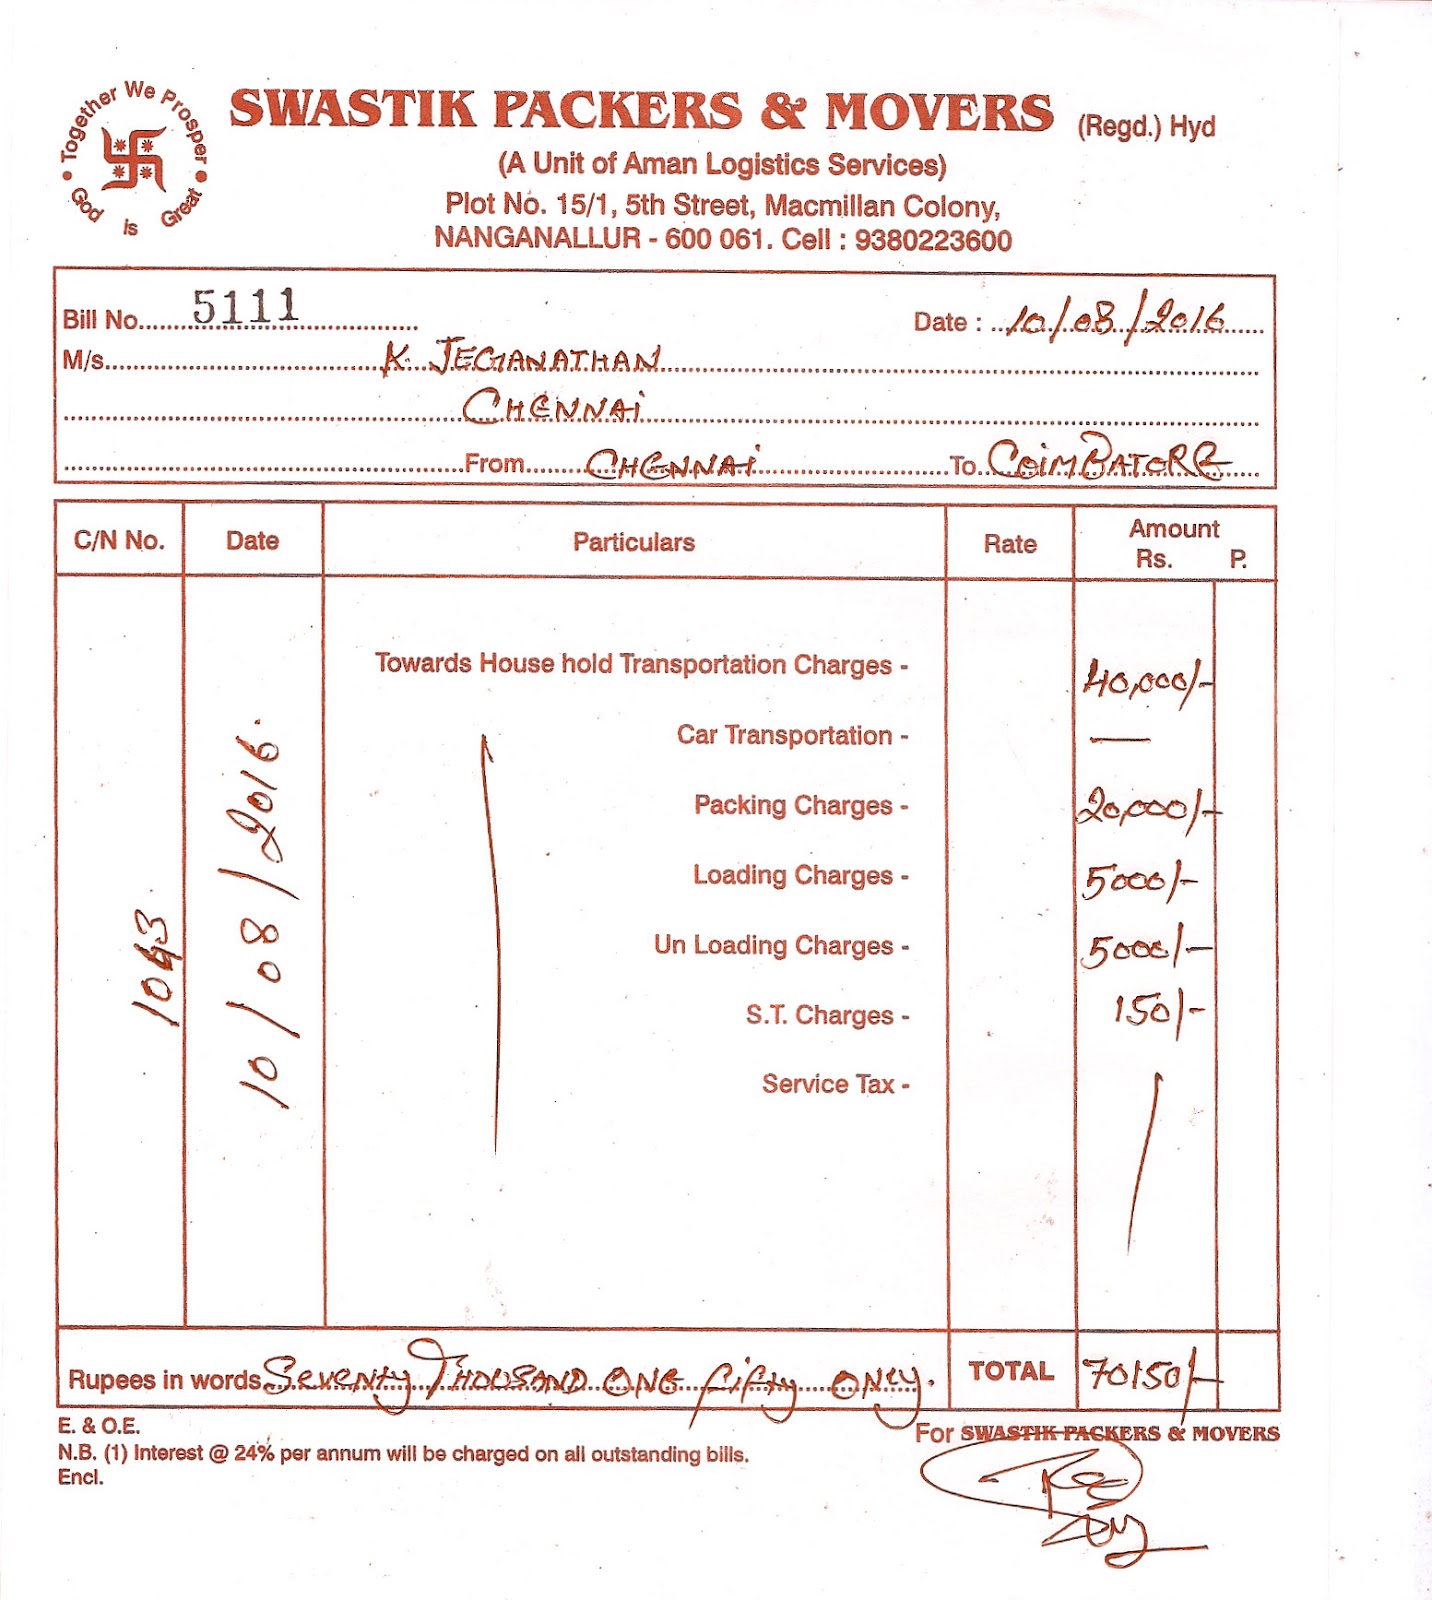 Together We Prosper
God is Great
SWASTIK PACKERS & MOVERS (Regd.) Hyd
(A Unit of Aman Logistics Services)
Plot No. 15/1, 5th Street, Macmillan Colony,
NANGANALLUR - 600 061. Cell : 9380223600
Bill No. 5111 Date : 10/08/2016
M/s. K. JEGANATHAN
CHENNAI
From CHENNAI To COIMBATORE
C/N No. Date Particulars Rate Amount
Rs. P.
1043 10/08/2016.
Towards House hold Transportation Charges - 40,000/-
Car Transportation - —
Packing Charges - 20,000/-
Loading Charges - 5000/-
Un Loading Charges - 5000/-
S.T. Charges - 150/-
Service Tax -
Rupees in words Seventy Thousand One fifty only. TOTAL 70150/-
E. & O.E. For SWASTIK PACKERS & MOVERS
N.B. (1) Interest @ 24% per annum will be charged on all outstanding bills.
Encl.